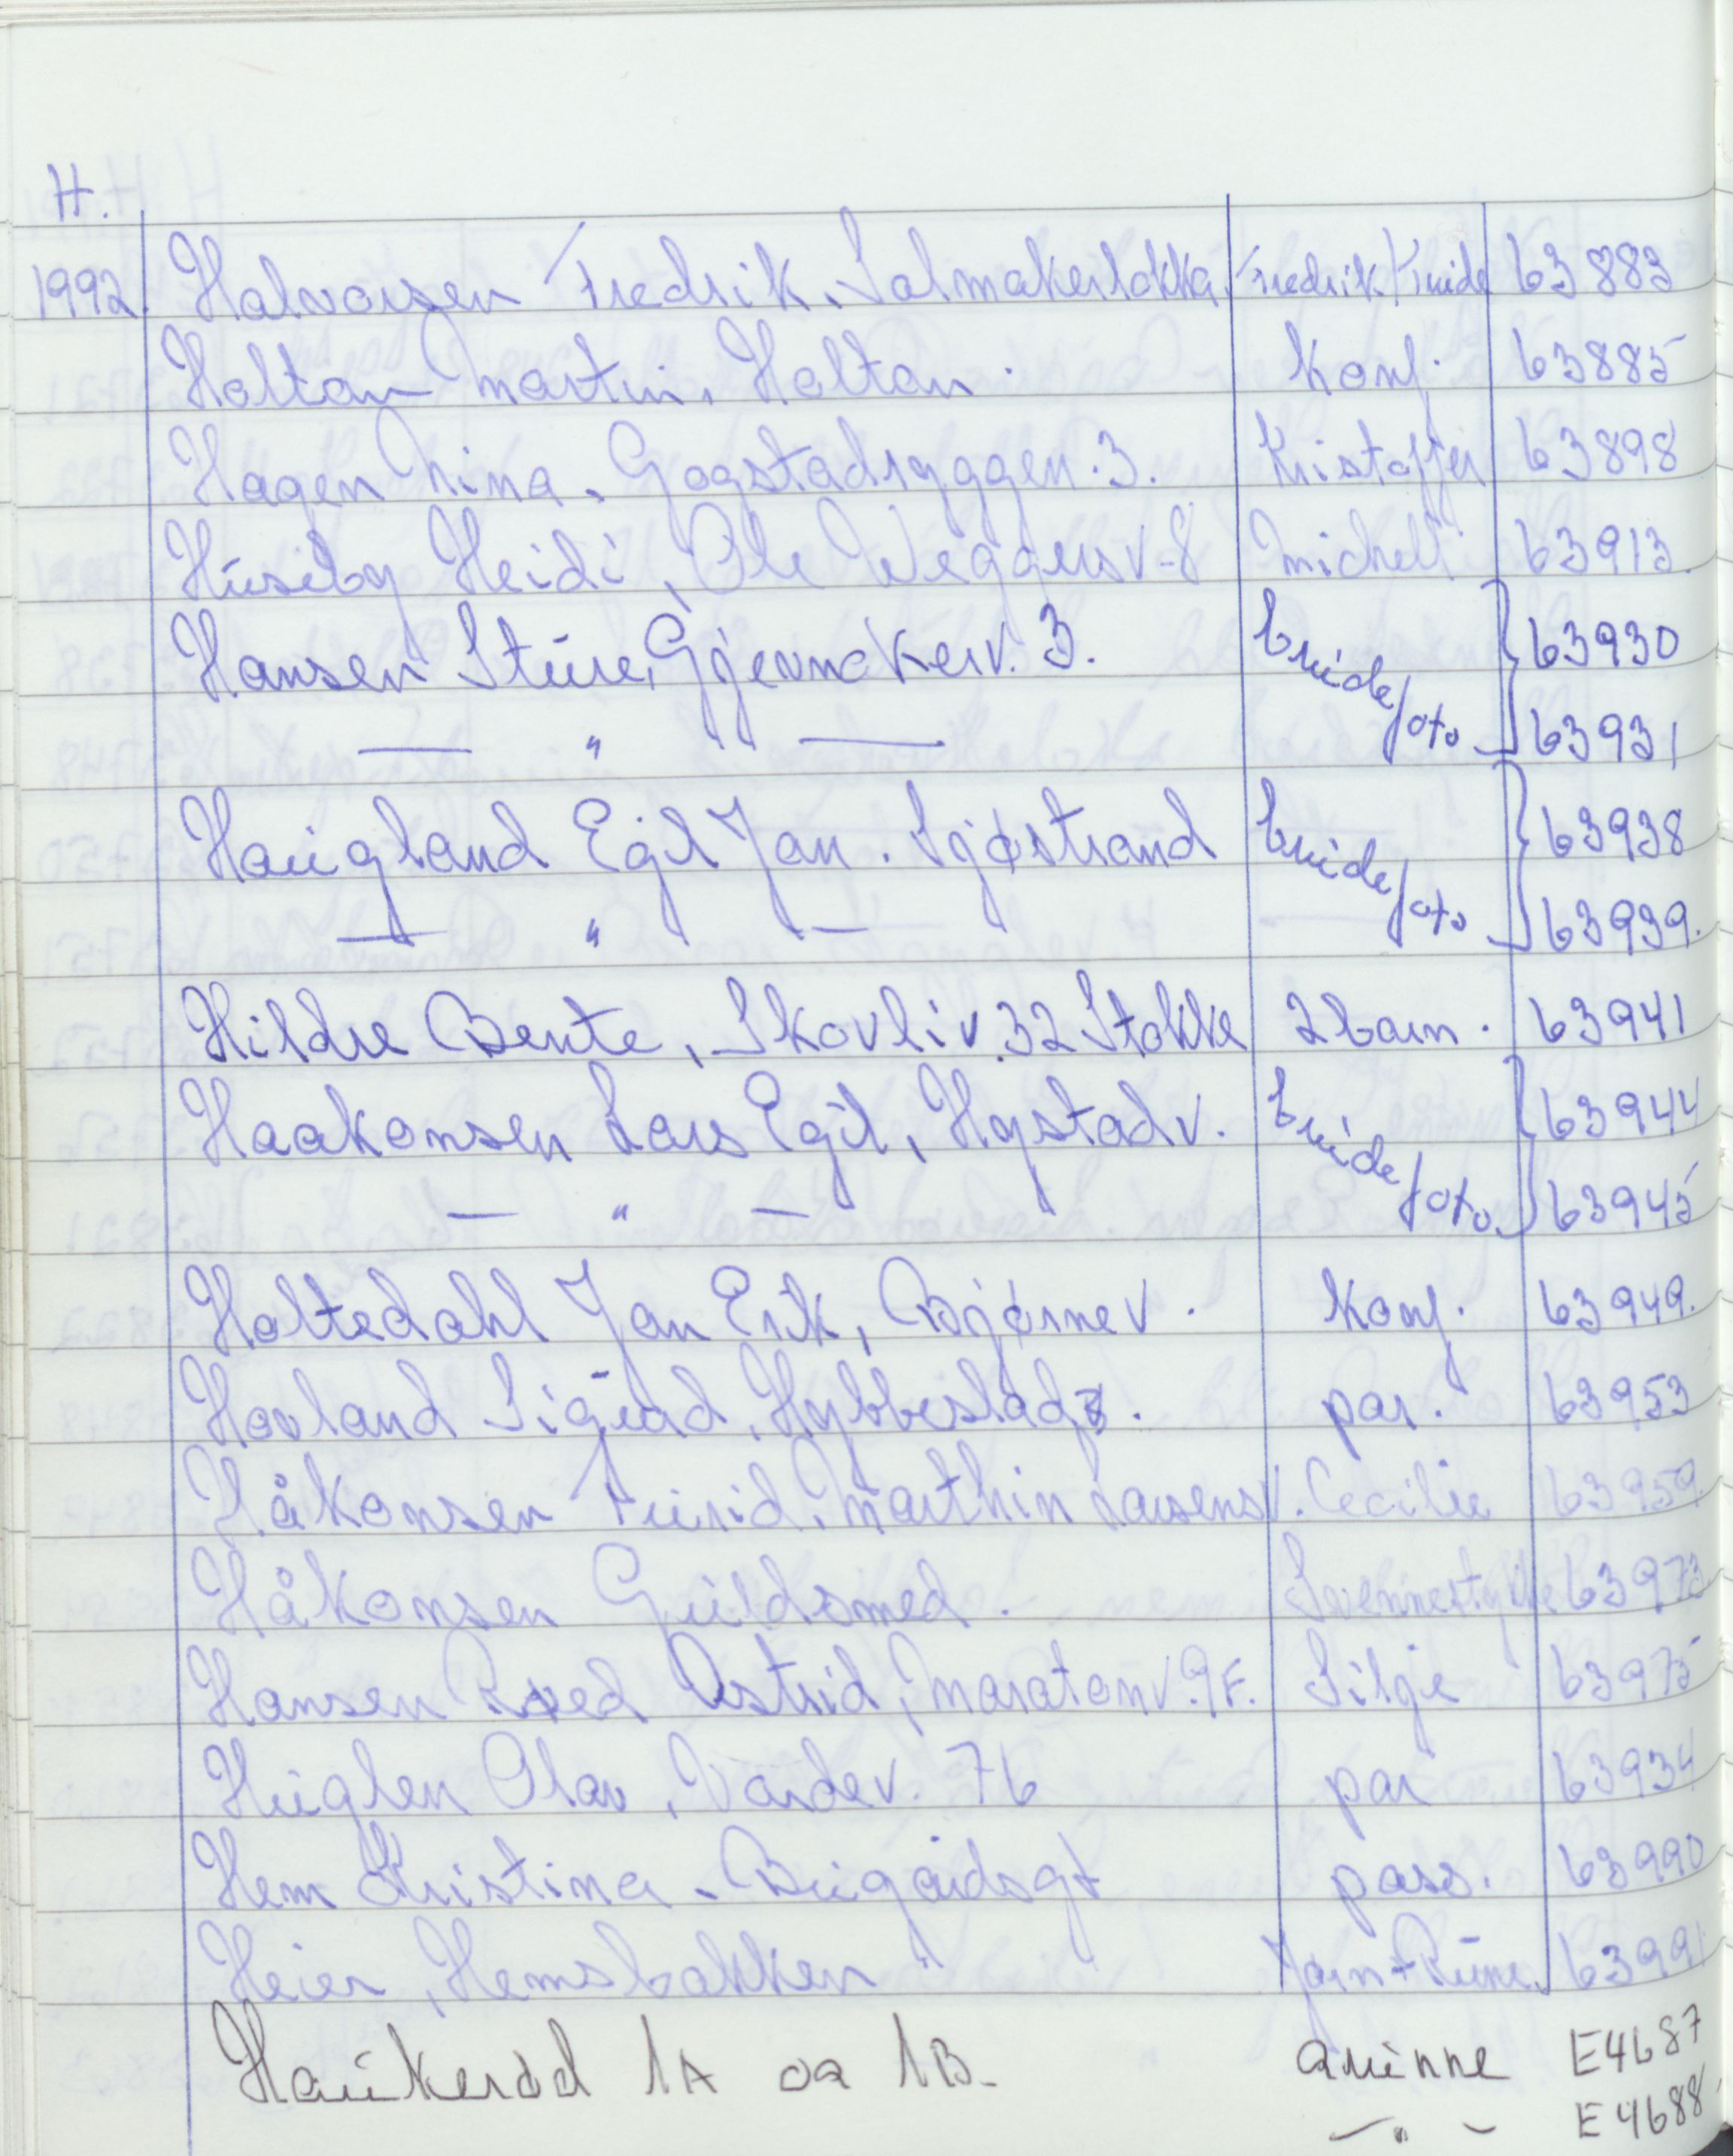 H.
1992. Halvorsen Fredrik. Salmakerløkka. Fredrik Truide 63883
Holtan Martin, Holtan. konf. 63885
Hagen Nina. Gogstadryggen. 3. Kristoffer 63898
Huseby Heidi, Ole Weggersv-8 Michell 63913.
Hansen Sture, Gjermakerv. 3. brudefoto 63930
— " — 63931
Haugland Egil Jan. Sjøstrand brudefoto 63938
— " — 63939.
Hildre Bente, Skovliv. 32 Stokke 2 barn. 63941
Haakonsen Lars Egil, Hystadv. brudefoto. 63944
— " — 63945
Holtedahl Jan Erik, Bjørnev. konf. 63949.
Hovland Sigurd, Hybbestad par. 63953
Håkonsen Turid, Marthin Larsensv. Cecilie 63959.
Håkonsen Gullsmed. Svennestykke 63973
Hansen Roed Astrid, Maratonv. 9F. Silje 63975
Huglen Olav, Vardev. 76 par 63934
Hem Kristina. Bugårdsgt pass. 63990
Heier, Hemsbakken Jørn + Rune. 63991
Haukerød 1A og 1B. Grinne E4687
— " — E4688